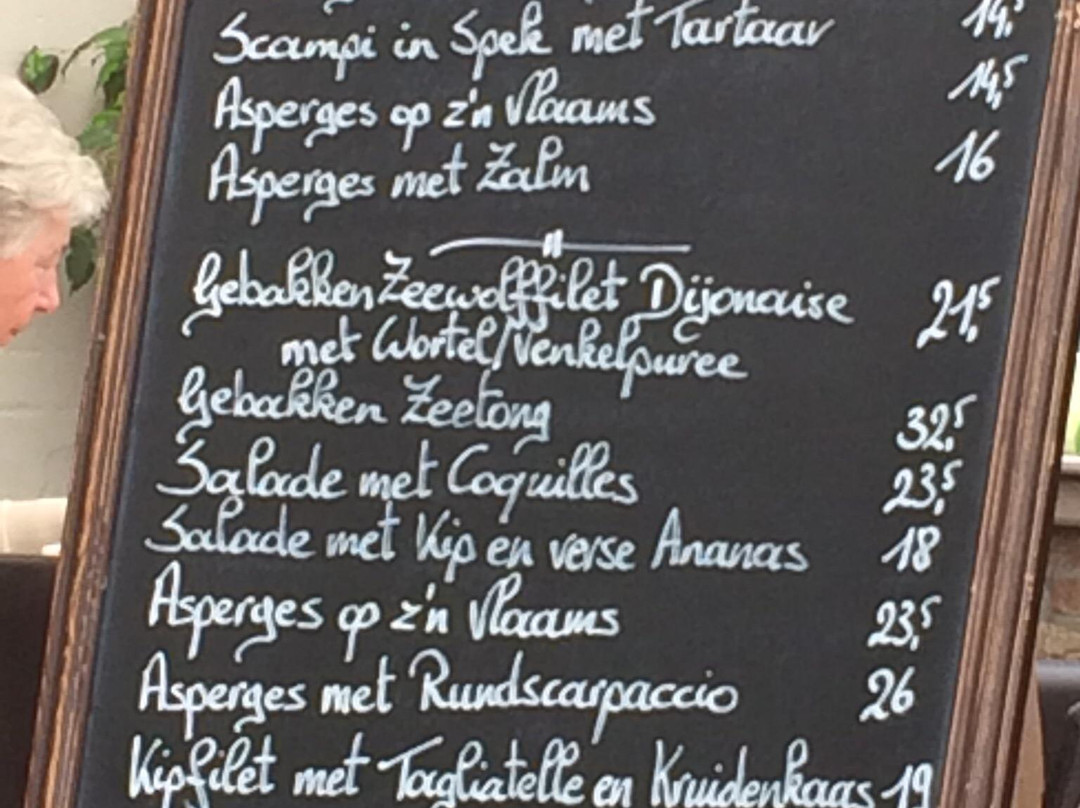 Scampi in Spek met Tartaar 14,5
Asperges op z'n Vlaams 14,5
Asperges met Zalm 16
Gebakken Zeewolffilet Dijonaise 21,5
met Wortel/Venkelpuree
Gebakken Zeetong 32,5
Salade met Coquilles 23,5
Salade met Kip en verse Ananas 18
Asperges op z'n Vlaams 23,5
Asperges met Rundscarpaccio 26
Kipfilet met Tagliatelle en Kruidenkaas 19